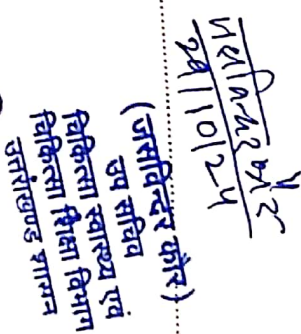 जसविन्दर कौर
29/10/24
(जसविन्दर कौर)
उप सचिव
चिकित्सा स्वास्थ्य एवं
चिकित्सा शिक्षा विभाग
उत्तराखण्ड शासन